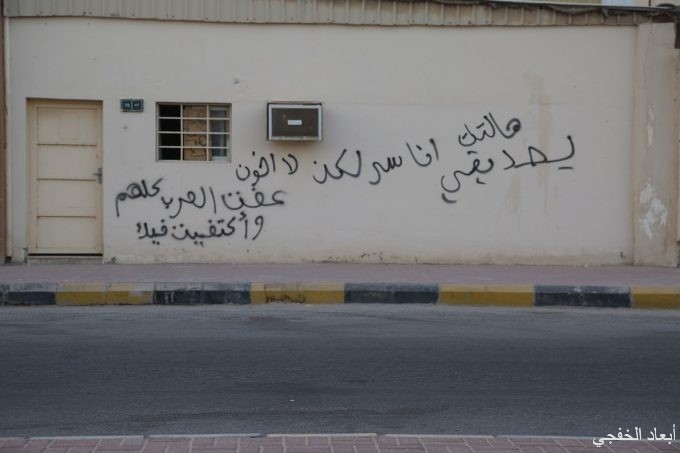 هالتك انا سر لكن لا اخون
يصديقي
عفت العرب كلهم
وأكتفيت فيك
أبعاد الخفجي